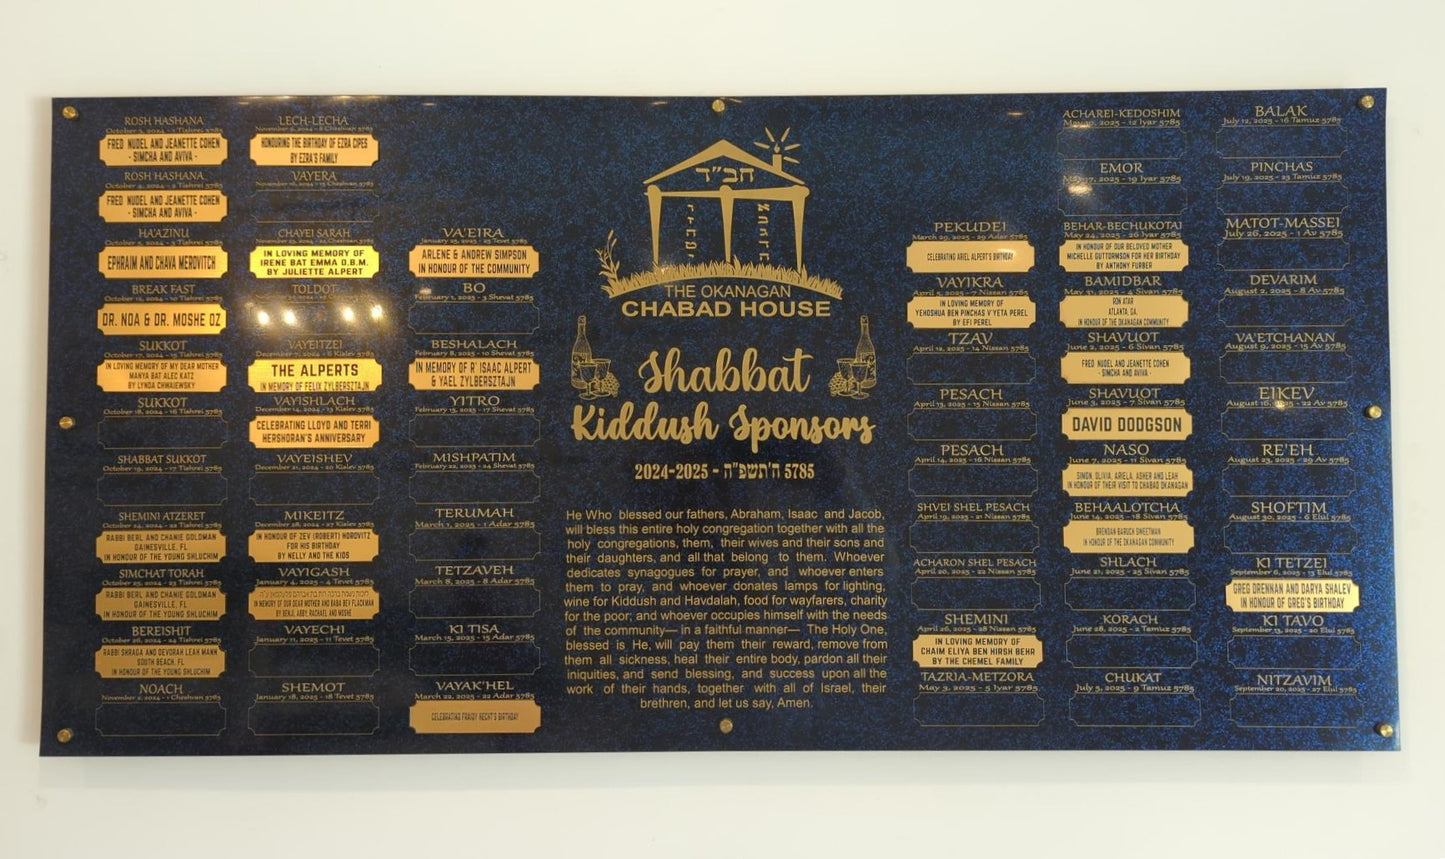 ROSH HASHANA
October 3, 2024 - 1 Tishrei 5785
FRED NUDEL AND JEANETTE COHEN
- SIMCHA AND AVIVA -
ROSH HASHANA
October 4, 2024 - 2 Tishrei 5785
FRED NUDEL AND JEANETTE COHEN
- SIMCHA AND AVIVA -
HA'AZINU
October 5, 2024 - 3 Tishrei 5785
EPHRAIM AND CHAVA MEROVITCH
BREAK FAST
October 12, 2024 - 10 Tishrei 5785
DR. NOA & DR. MOSHE OZ
SUKKOT
October 17, 2024 - 15 Tishrei 5785
IN LOVING MEMORY OF MY DEAR MOTHER
MANYA BAT ALEC KATZ
BY LYNDA CHWAIEWSKY
SUKKOT
October 18, 2024 - 16 Tishrei 5785
SHABBAT SUKKOT
October 19, 2024 - 17 Tishrei 5785
SHEMINI ATZERET
October 24, 2024 - 22 Tishrei 5785
RABBI BERL AND CHANIE GOLDMAN
GAINESVILLE, FL
IN HONOUR OF THE YOUNG SHLUCHIM
SIMCHAT TORAH
October 25, 2024 - 23 Tishrei 5785
RABBI BERL AND CHANIE GOLDMAN
GAINESVILLE, FL
IN HONOUR OF THE YOUNG SHLUCHIM
BEREISHIT
October 26, 2024 - 24 Tishrei 5785
RABBI SHRAGA AND DEVORAH LEAH MANN
SOUTH BEACH, FL
IN HONOUR OF THE YOUNG SHLUCHIM
NOACH
November 2, 2024 - 1 Cheshvan 5785
LECH-LECHA
November 9, 2024 - 8 Cheshvan 5785
HONOURING THE BIRTHDAY OF EZRA CIPES
BY EZRA'S FAMILY
VAYERA
November 16, 2024 - 15 Cheshvan 5785
CHAYEI SARAH
November 23, 2024 - 22 Cheshvan 5785
IN LOVING MEMORY OF
IRENE BAT EMMA O.B.M.
BY JULIETTE ALPERT
TOLDOT
VAYEITZEI
December 7, 2024 - 6 Kislev 5785
THE ALPERTS
IN MEMORY OF FELIX ZYLBERSZTAJN
VAYISHLACH
December 14, 2024 - 13 Kislev 5785
CELEBRATING LLOYD AND TERRI
HERSHORAN'S ANNIVERSARY
VAYEISHEV
December 21, 2024 - 20 Kislev 5785
MIKEITZ
December 28, 2024 - 27 Kislev 5785
IN HONOUR OF ZEV (ROBERT) HOROVITZ
FOR HIS BIRTHDAY
BY NELLY AND THE KIDS
VAYIGASH
January 4, 2025 - 4 Tevet 5785
IN MEMORY OF OUR DEAR MOTHER AND BABA BEV FLACKMAN
BY BENJI, ABBY, RACHAEL AND MOSHE
VAYECHI
January 11, 2025 - 11 Tevet 5785
SHEMOT
January 18, 2025 - 18 Tevet 5785
VA'EIRA
January 25, 2025 - 25 Tevet 5785
ARLENE & ANDREW SIMPSON
IN HONOUR OF THE COMMUNITY
BO
February 1, 2025 - 3 Shevat 5785
BESHALACH
February 8, 2025 - 10 Shevat 5785
IN MEMORY OF R' ISAAC ALPERT
& YAEL ZYLBERSZTAJN
YITRO
February 15, 2025 - 17 Shevat 5785
MISHPATIM
February 22, 2025 - 24 Shevat 5785
TERUMAH
March 1, 2025 - 1 Adar 5785
TETZAVEH
March 8, 2025 - 8 Adar 5785
KI TISA
March 15, 2025 - 15 Adar 5785
VAYAK'HEL
March 22, 2025 - 22 Adar 5785
CELEBRATING FRAIDY HECHT'S BIRTHDAY
חב"ד
THE OKANAGAN
CHABAD HOUSE
Shabbat
Kiddush Sponsors
2024-2025 - ה'תשפ"ה 5785
He Who blessed our fathers, Abraham, Isaac and Jacob,
will bless this entire holy congregation together with all the
holy congregations, them, their wives and their sons and
their daughters, and all that belong to them. Whoever
dedicates synagogues for prayer, and whoever enters
them to pray, and whoever donates lamps for lighting,
wine for Kiddush and Havdalah, food for wayfarers, charity
for the poor; and whoever occupies himself with the needs
of the community— in a faithful manner— The Holy One,
blessed is He, will pay them their reward, remove from
them all sickness, heal their entire body, pardon all their
iniquities, and send blessing, and success upon all the
work of their hands, together with all of Israel, their
brethren, and let us say, Amen.
PEKUDEI
March 29, 2025 - 29 Adar 5785
CELEBRATING ARIEL ALPERT'S BIRTHDAY
VAYIKRA
April 5, 2025 - 7 Nissan 5785
IN LOVING MEMORY OF
YEHOSHUA BEN PINCHAS V YETA PEREL
BY EFI PEREL
TZAV
April 12, 2025 - 14 Nissan 5785
PESACH
April 13, 2025 - 15 Nissan 5785
PESACH
April 14, 2025 - 16 Nissan 5785
SHVEI SHEL PESACH
April 19, 2025 - 21 Nissan 5785
ACHARON SHEL PESACH
April 20, 2025 - 22 Nissan 5785
SHEMINI
April 26, 2025 - 28 Nissan 5785
IN LOVING MEMORY OF
CHAIM ELIYA BEN HIRSH BEHR
BY THE CHEMEL FAMILY
TAZRIA-METZORA
May 3, 2025 - 5 Iyar 5785
ACHAREI-KEDOSHIM
May 10, 2025 - 12 Iyar 5785
EMOR
May 17, 2025 - 19 Iyar 5785
BEHAR-BECHUKOTAI
May 24, 2025 - 26 Iyar 5785
IN HONOUR OF OUR BELOVED MOTHER
MICHELLE GUTTORMSON FOR HER BIRTHDAY
BY ANTHONY FURBER
BAMIDBAR
May 31, 2025 - 4 Sivan 5785
RON ATAR
ATLANTA, GA.
IN HONOUR OF THE OKANAGAN COMMUNITY
SHAVUOT
June 2, 2025 - 6 Sivan 5785
FRED NUDEL AND JEANETTE COHEN
- SIMCHA AND AVIVA -
SHAVUOT
June 3, 2025 - 7 Sivan 5785
DAVID DODGSON
NASO
June 7, 2025 - 11 Sivan 5785
SIMON, OLIVIA, ARIELA, ASHER AND LEAH
IN HONOUR OF THEIR VISIT TO CHABAD OKANAGAN
BEHAALOTCHA
June 14, 2025 - 18 Sivan 5785
BRENDAN BARUCH SWEETMAN
IN HONOUR OF THE OKANAGAN COMMUNITY
SHLACH
June 21, 2025 - 25 Sivan 5785
KORACH
June 28, 2025 - 2 Tamuz 5785
CHUKAT
July 5, 2025 - 9 Tamuz 5785
BALAK
July 12, 2025 - 16 Tamuz 5785
PINCHAS
July 19, 2025 - 23 Tamuz 5785
MATOT-MASSEI
July 26, 2025 - 1 Av 5785
DEVARIM
August 2, 2025 - 8 Av 5785
VA'ETCHANAN
August 9, 2025 - 15 Av 5785
EIKEV
August 16, 2025 - 22 Av 5785
RE'EH
August 23, 2025 - 29 Av 5785
SHOFTIM
August 30, 2025 - 6 Elul 5785
KI TETZEI
September 6, 2025 - 13 Elul 5785
GREG DRENNAN AND DARYA SHALEV
IN HONOUR OF GREG'S BIRTHDAY
KI TAVO
September 13, 2025 - 20 Elul 5785
NITZAVIM
September 20, 2025 - 27 Elul 5785